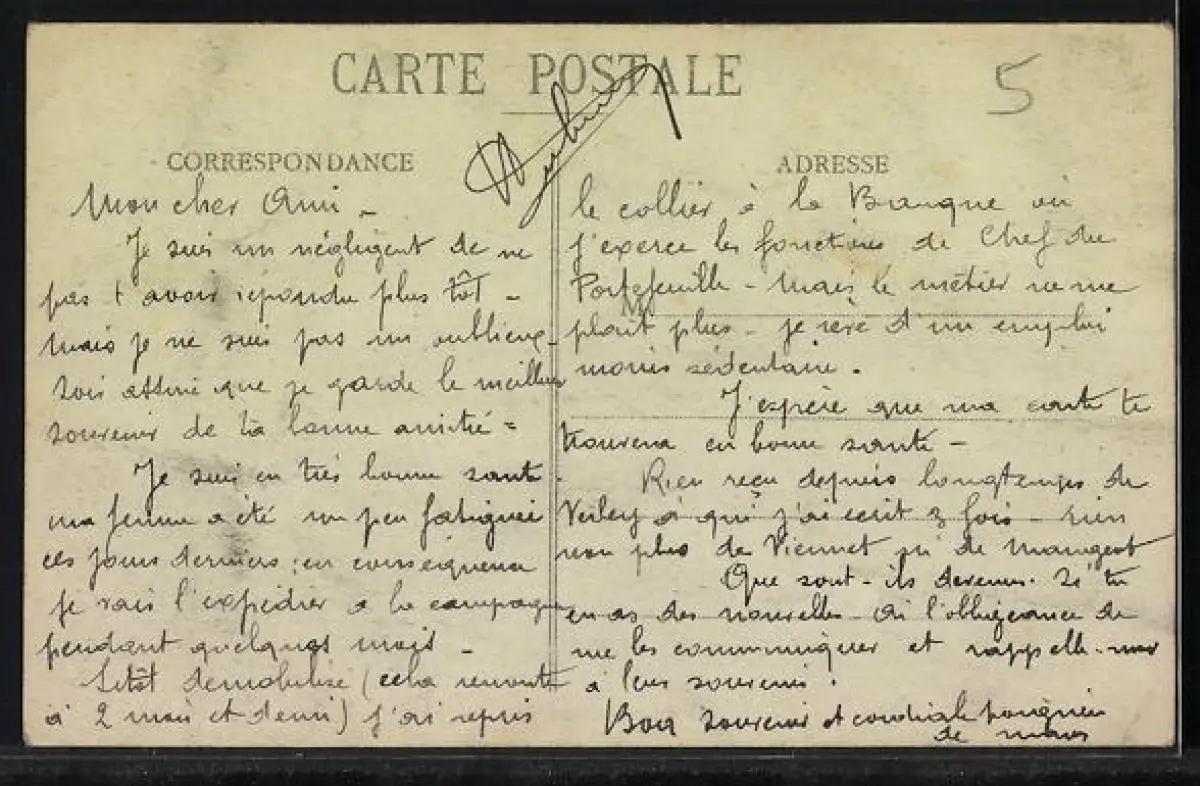 CARTE POSTALE
5
CORRESPONDANCE
Mon cher Ami –
Je suis un négligent de ne
pas t'avoir répondu plus tôt –
Mais je ne suis pas un oublieux –
sois assuré que je garde le meilleur
souvenir de ta bonne amitié =
Je suis en très bonne santé.
ma femme a été un peu fatiguée
ces jours derniers ; en conséquence
je vais l'expédier à la campagne
pendant quelques mois –
Sitôt démobilisé (cela remonte
à 2 mois et demi) j'ai repris
ADRESSE
le collier à la Banque où
j'exerce les fonctions de Chef du
Portefeuille – Mais le métier ne me
M
plait plus – je rêve d'un emploi
moins sédentaire.
J'espère que ma carte te
trouvera en bonne santé –
Rien reçu depuis longtemps de
à qui j'ai écrit 3 fois – rien
non plus de Viennet ni de Maugeot
Que sont-ils devenus. Si tu
en as des nouvelles – ai l'obligeance de
me les communiquer et rappelle-moi
à leur souvenir.
Bon souvenir et cordiale poignée
de mains